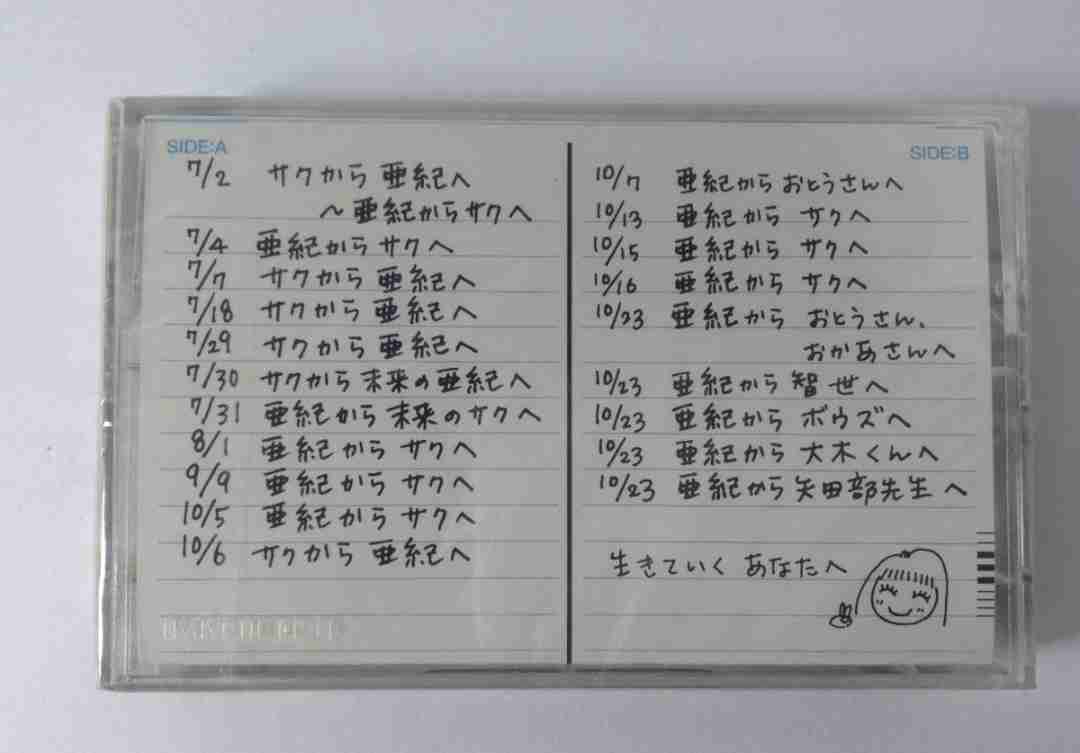 SIDE:A
7/2 サクから 亜紀へ
～亜紀からサクへ
7/4 亜紀からサクへ
7/7 サクから 亜紀へ
7/18 サクから 亜紀へ
7/29 サクから 亜紀へ
7/30 サクから 未来の亜紀へ
7/31 亜紀から 未来のサクへ
8/1 亜紀から サクへ
9/9 亜紀から サクへ
10/5 亜紀から サクへ
10/6 サクから 亜紀へ
SIDE:B
10/7 亜紀から おとうさんへ
10/13 亜紀から サクへ
10/15 亜紀から サクへ
10/16 亜紀から サクへ
10/23 亜紀から おとうさん、
おかあさんへ
10/23 亜紀から 智世へ
10/23 亜紀から ボウズへ
10/23 亜紀から 大木くんへ
10/23 亜紀から 矢田部先生へ
生きていく あなたへ